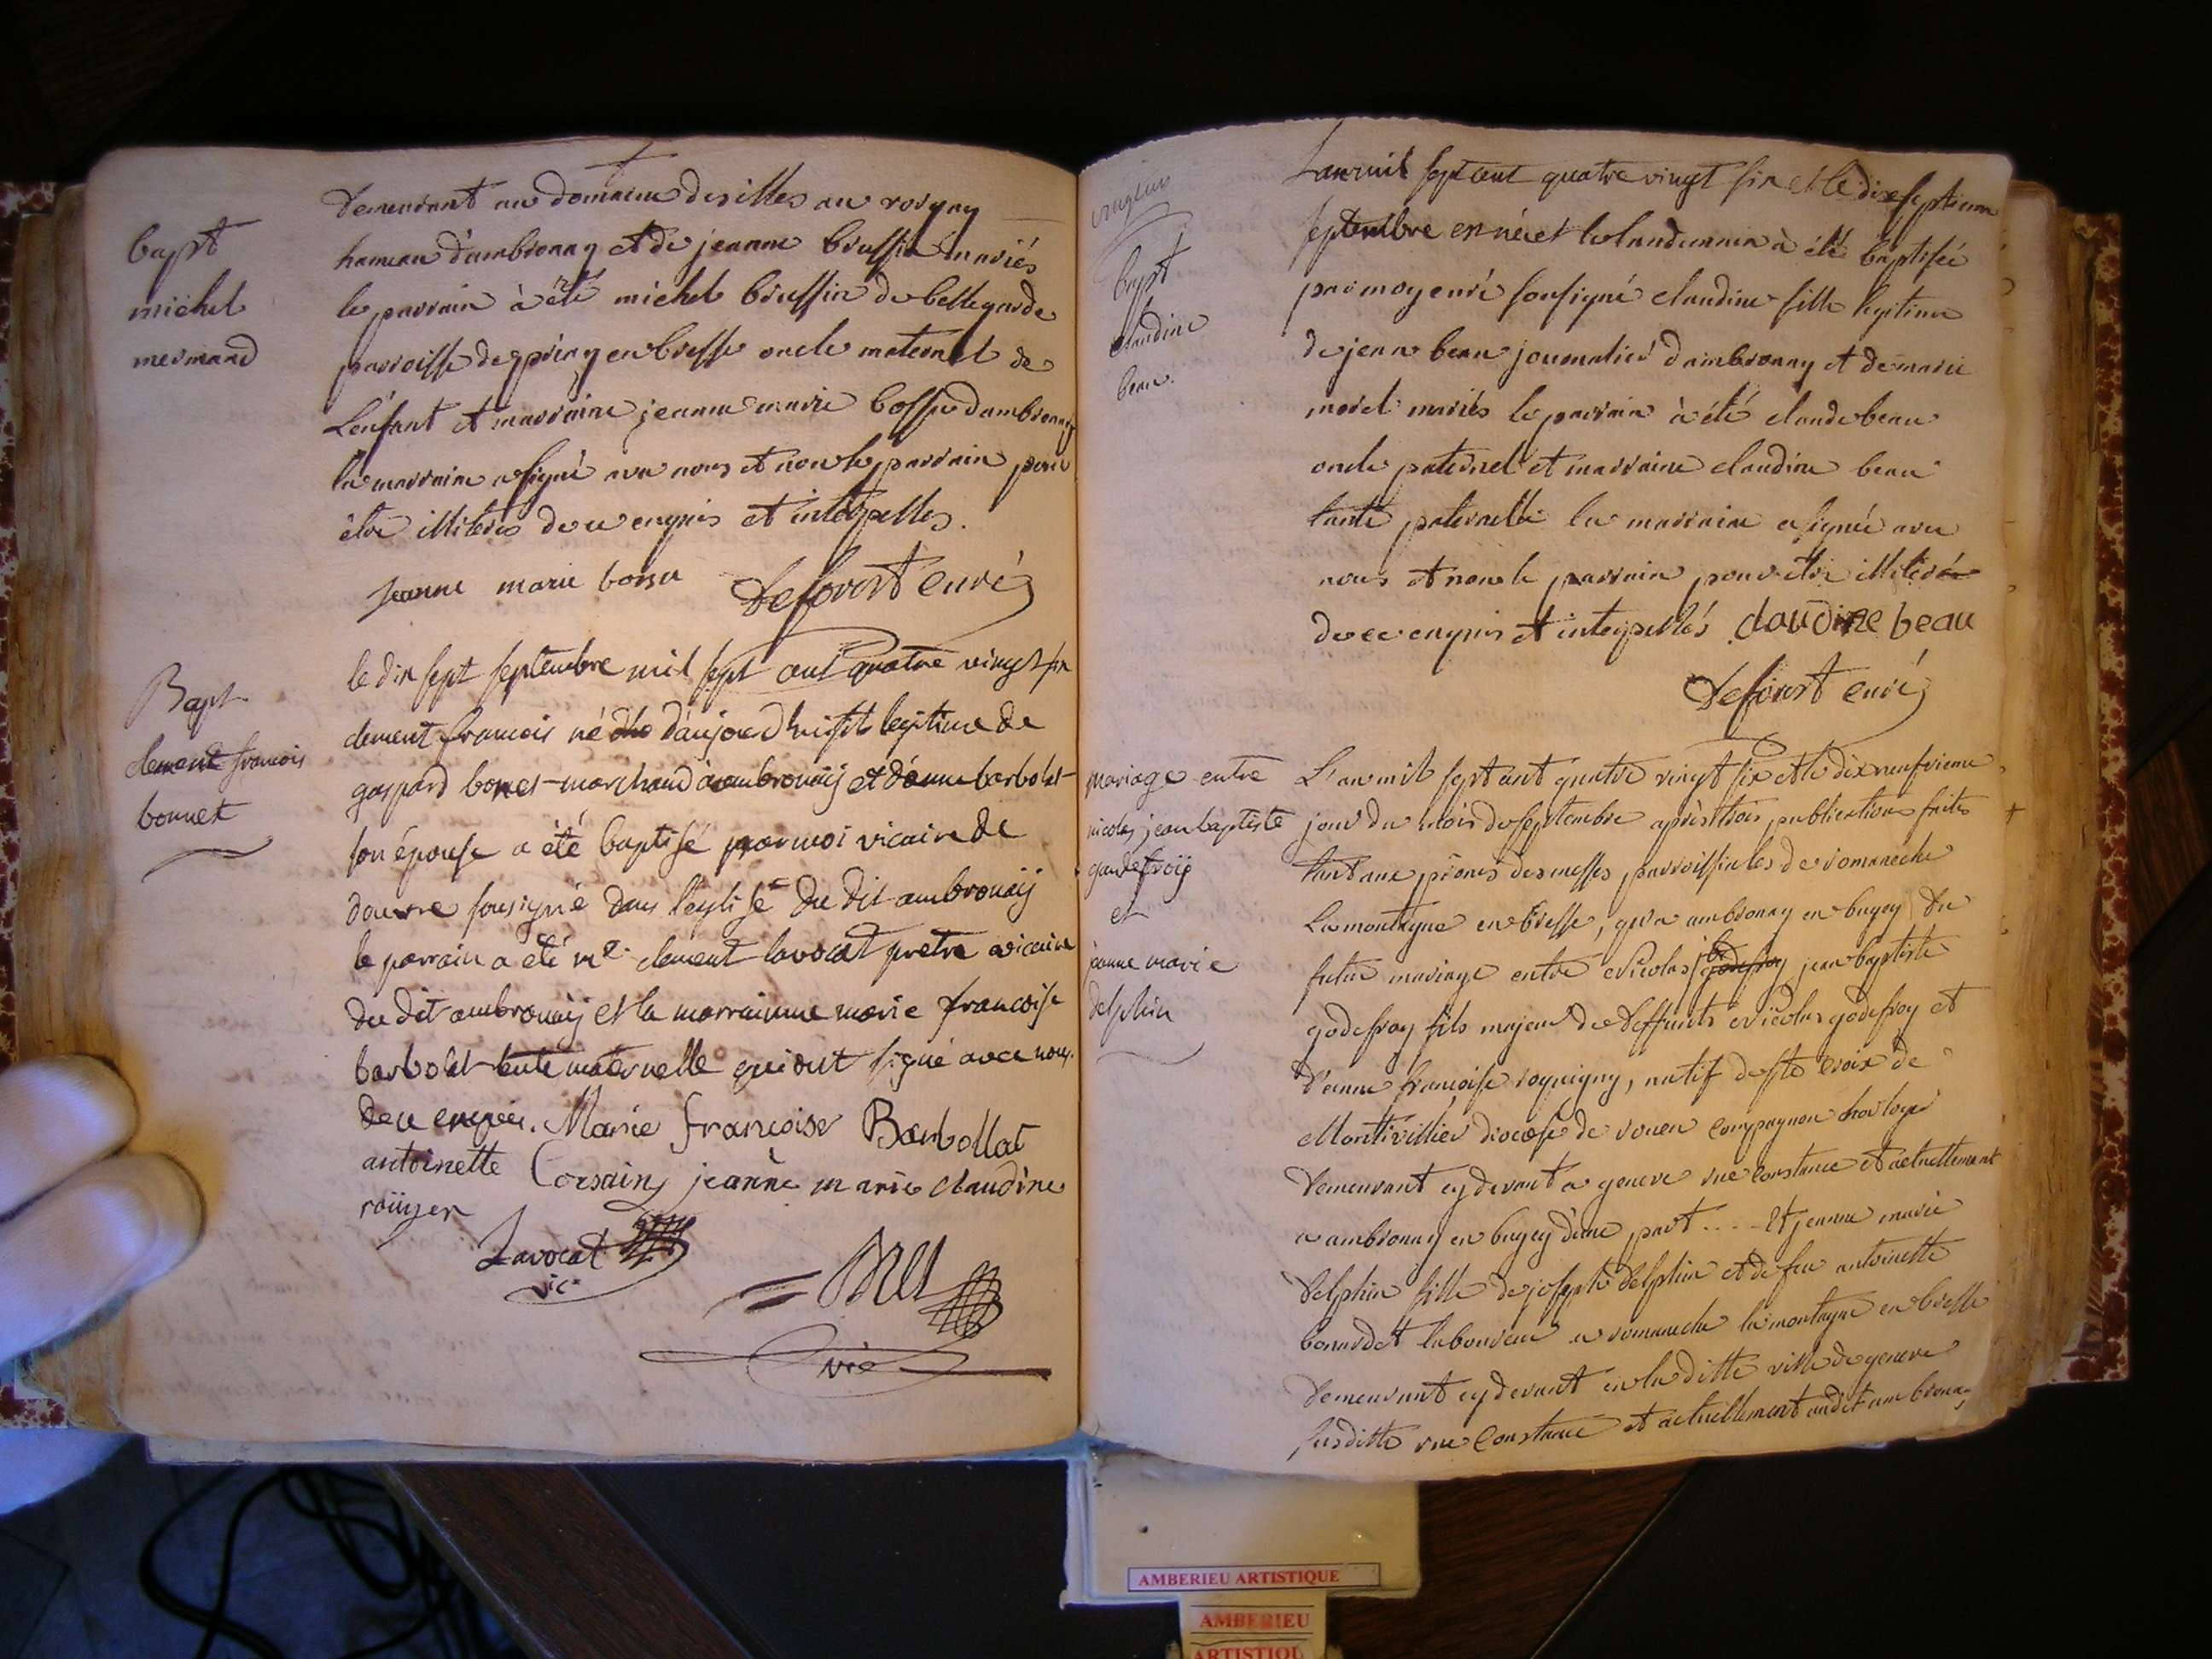 bapt
michel
mermand
demeurant au domaine des illes au
hameau d'ambronay et de jeanne bruffin mariés
le parrain à été michel bruffin de bellegarde
parroisse de priay en bresse oncle maternel de
L'enfant et marraine jeanne marie bossu d'ambronay
la marraine a signé avec nous et non le parrain pour
être illiteré de ce enquis et interpellés.
jeanne marie bossu Deforest curé
Bapt
clement francois
bonnet
le dix sept septembre mil sept cent quatre vingt six
clement francois né d'aujourd'hui fils legitime de
gaspard bonet marchand à ambronaÿ et d'anne barbolat
son épouse a été baptisé par moi vicaire de
douvre sousigné dans l'eglise du dit ambronaÿ
le parrain a été mre clement lavocat pretre vicaire
du dit ambronaÿ et la marrainne marie francoise
barbolat tente maternelle qui ont signé avec nous
de ce enquis. Marie francoise Barbollat
antoinette Corsain jeanne marie claudine
roüyer
Lavocat
vic.
vic
bapt
claudine
beau.
L'an mil sept cent quatre vingt six et le dix septieme
septembre est née et le landemain à été baptisée
par moy curé sousigné claudine fille legitime
de jean beau journalier d'ambronay et de marie
morel mariés le parrain à été claude beau
oncle paternel et marraine claudine beau
tante paternelle la marraine a signée avec
nous et non le parrain pour être illiteré
de ce enquis et interpellés claudine beau
Deforest curé
mariage entre
nicolas jean baptiste
gaudefroÿ
et
jeanne marie
delphin
L'an mil sept cent quatre vingt six et le dix neuvieme
jour du mois de septembre après trois publications faites
tant aux prônes des messes parroissiales de romaneche
la montagne en bresse, qu'a ambronay en bugey du
futur mariage entre Nicolas godefroy jean baptiste
godefroy fils majeur de deffunts Nicolas godefroy et
d'anne françoise roquigny, natif de ste Croix de
Montivillier diocese de rouen compagnon horloger
demeurant cy devant a geneve rue Constance et actuellement
a ambronay en bugey d'une part .... Et jeanne marie
delphin fille de joseph delphin et de feu antoinette
bonardet laboureur a romaneche la montagne en bresse
demeurant cy devant en la ditte ville de geneve
susditte rue Constance et actuellement audit ambronay
AMBERIEU ARTISTIQUE
AMBERIEU
ARTISTIQU